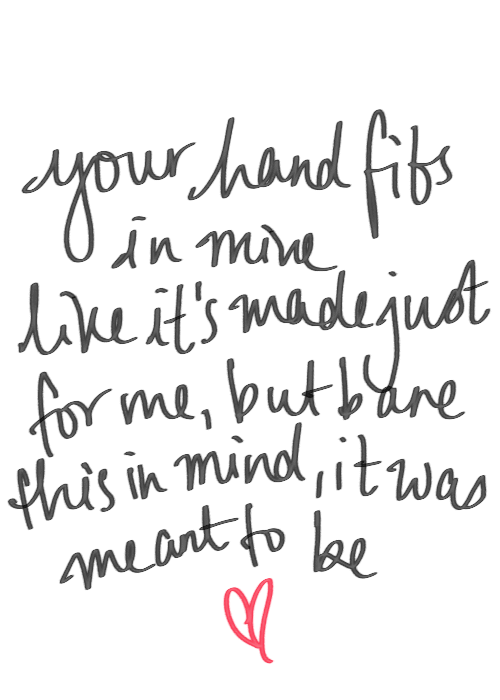 your hand fits
in mine
like it's made just
for me, but bare
this in mind, it was
meant to be